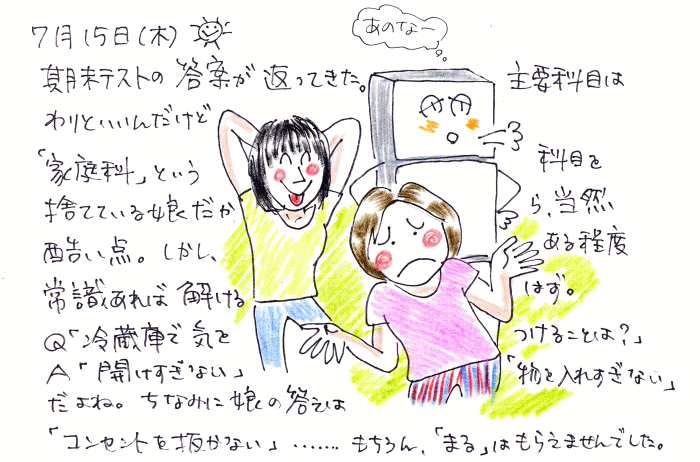 あのなー
7月15日(木)
期末テストの答案が返ってきた。主要科目は
わりといいんだけど
「家庭科」という科目を
捨てている娘だから、当然
酷い点。しかし、ある程度
常識あれば解けるはず。
Q「冷蔵庫で気をつけることは?」
A「開けすぎない」「物を入れすぎない」
だよね。ちなみに娘の答えは
「コンセントを抜かない」……. もちろん、「まる」はもらえませんでした。